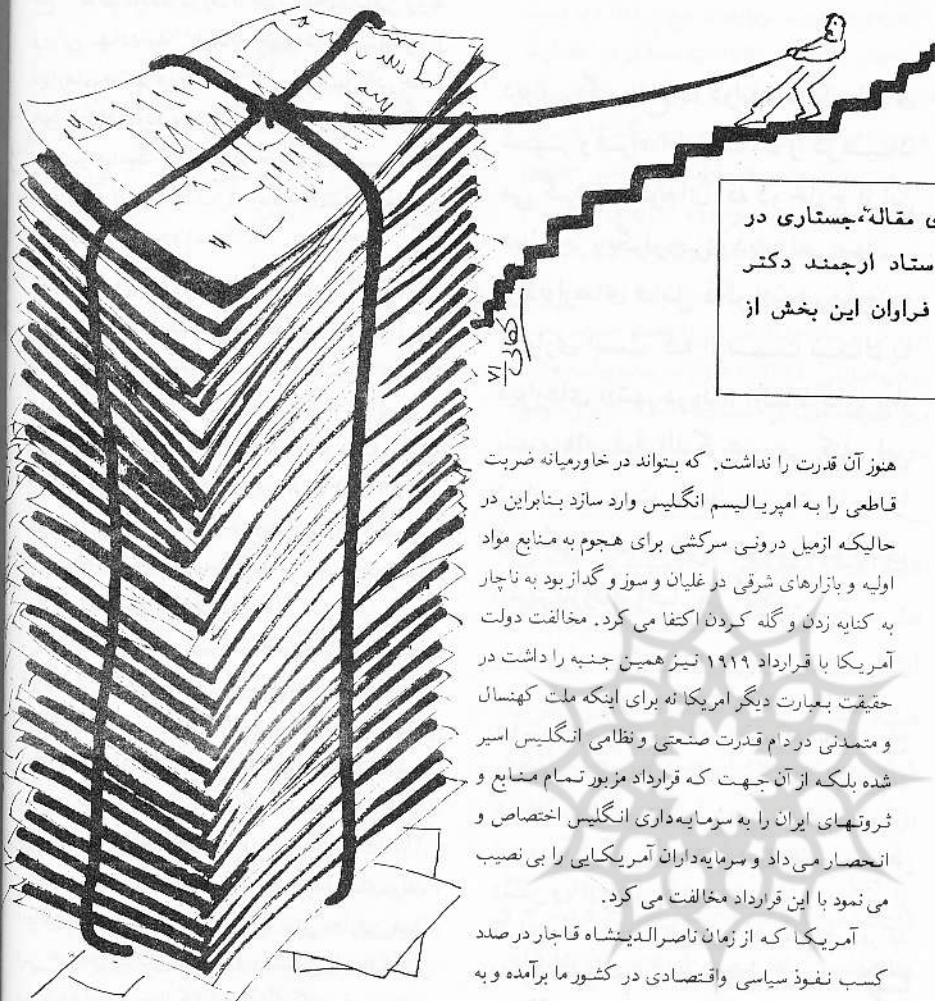 ی مقاله جستاری در
ستاد ارجمند دکتر
فراوان این بخش از
هنوز آن قدرت را نداشت. که بتواند در خاورمیانه ضربت
قاطعی را به امپریالیسم انگلیس وارد سازد بنابراین در
حالیکه ازمیل درونی سرکشی برای هجوم به منابع مواد
اولیه و بازارهای شرقی در غلیان و سوز و گداز بود به ناچار
به کنایه زدن و گله کردن اکتفا می کرد. مخالفت دولت
آمریکا با قرارداد ۱۹۱۹ نیز همین جنبه را داشت در
حقیقت بعبارت دیگر امریکا نه برای اینکه ملت کهنسال
و متمدنی در دام قدرت صنعتی و نظامی انگلیس اسیر
شده بلکه از آن جهت که قرارداد مزبور تمام منابع و
ثروتهای ایران را به سرمایه‌داری انگلیس اختصاص و
انحصار می داد و سرمایه‌داران آمریکایی را بی نصیب
می نمود با این قرارداد مخالفت می کرد.
آمریکا که از زمان ناصرالدینشاه قاجار در صدد
کسب نفوذ سیاسی واقتصادی در کشور ما برآمده و به